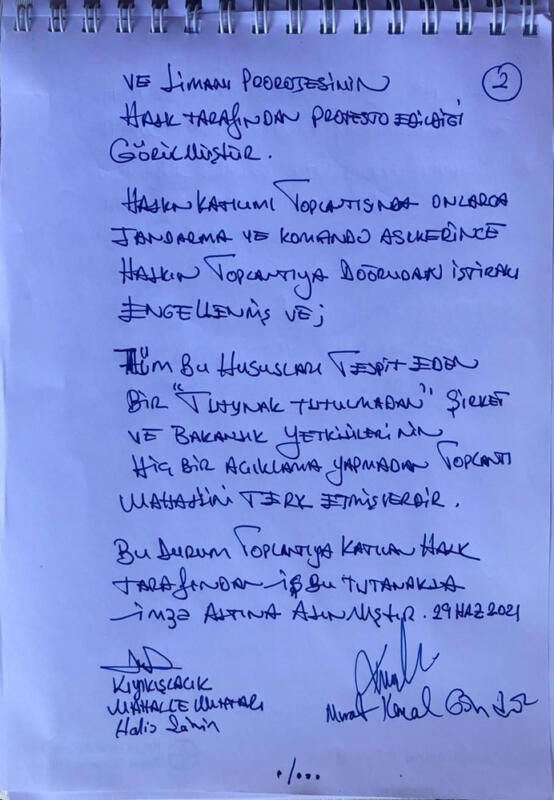 2
VE LİMANI PROROJESİNİN
HALK TARAFINDAN PROTESTO EDİLDİĞİ
GÖRÜLMÜŞTÜR.
HALKIN KATILIMI TOPLANTISINDA ONLARCA
JANDARMA VE KOMANDO ASKERİNCE
HALKIN TOPLANTIYA DOĞRUDAN İŞTİRAKI
ENGELLENMİŞ VE;
TÜM BU HUSUSLARI TESPİT EDEN
BİR "TUTYNAK TUTULMADAN" ŞİRKET
VE BAKANLIK YETKİLİLERİNİN
HİÇ BİR AÇIKLAMA YAPMADAN TOPLANTI
MAHALLİNİ TERK ETMİŞLERDİR.
BU DURUM TOPLANTIYA KATILAN HALK
TARAFINDAN İŞBU TUTANAKLA
İMZA ALTINA ALINMIŞTIR. 29 HAZ 2021
KIYIKIŞLACIK
MAHALLE MUHTARI
Halis Şahin
Murat Kemal
·/...